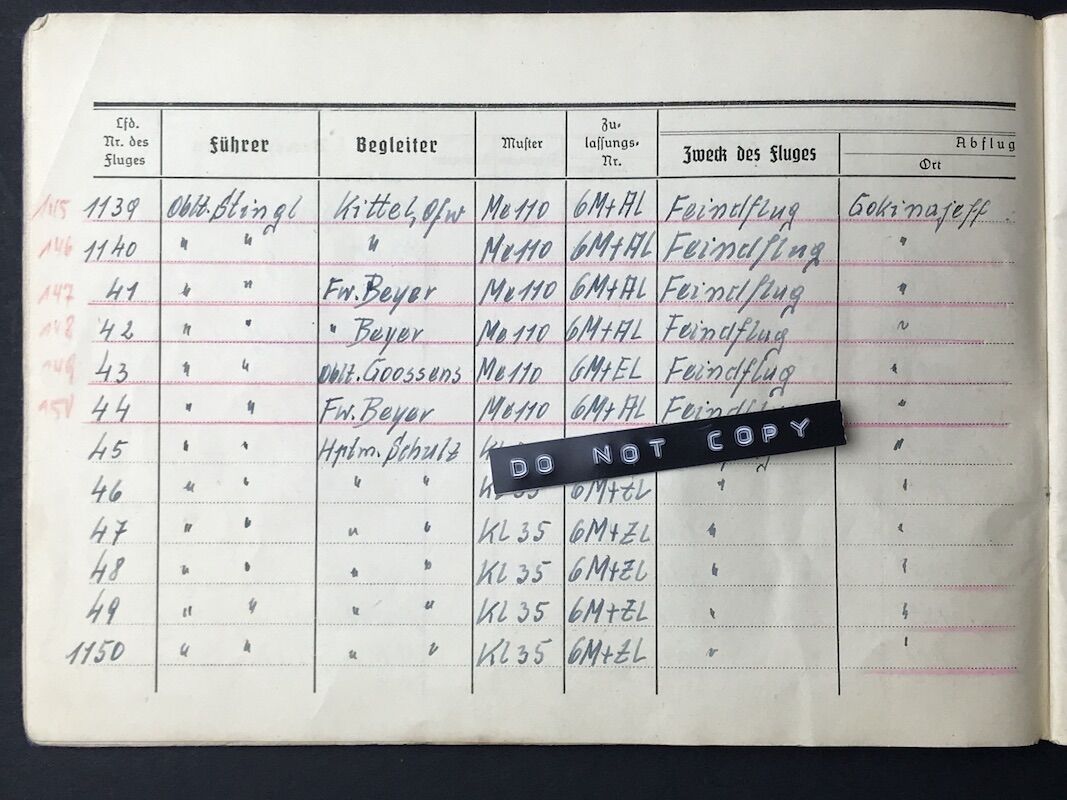 Lfd. Nr. des Fluges Führer Begleiter Muster Zu-lassungs-Nr. Zweck des Fluges Abflug Ort
145 1139 Oblt. Stingl Kittel, Ofw Me 110 6M+AL Feindflug Gokinajeff
146 1140 " " " Me 110 6M+AL Feindflug "
147 41 " " Fw. Beyer Me 110 6M+AL Feindflug "
148 42 " " " Beyer Me 110 6M+AL Feindflug "
149 43 " " Oblt. Goossens Me 110 6M+EL Feindflug "
44 " " Fw. Beyer Me 110 6M+AL "
45 " " Hptm. Schulz "
DO NOT COPY
46 " " " " 6M+ZL " "
47 " " " " Kl 35 6M+ZL " "
48 " " " " Kl 35 6M+ZL " "
49 " " " " Kl 35 6M+ZL " "
1150 " " " " Kl 35 6M+ZL " "